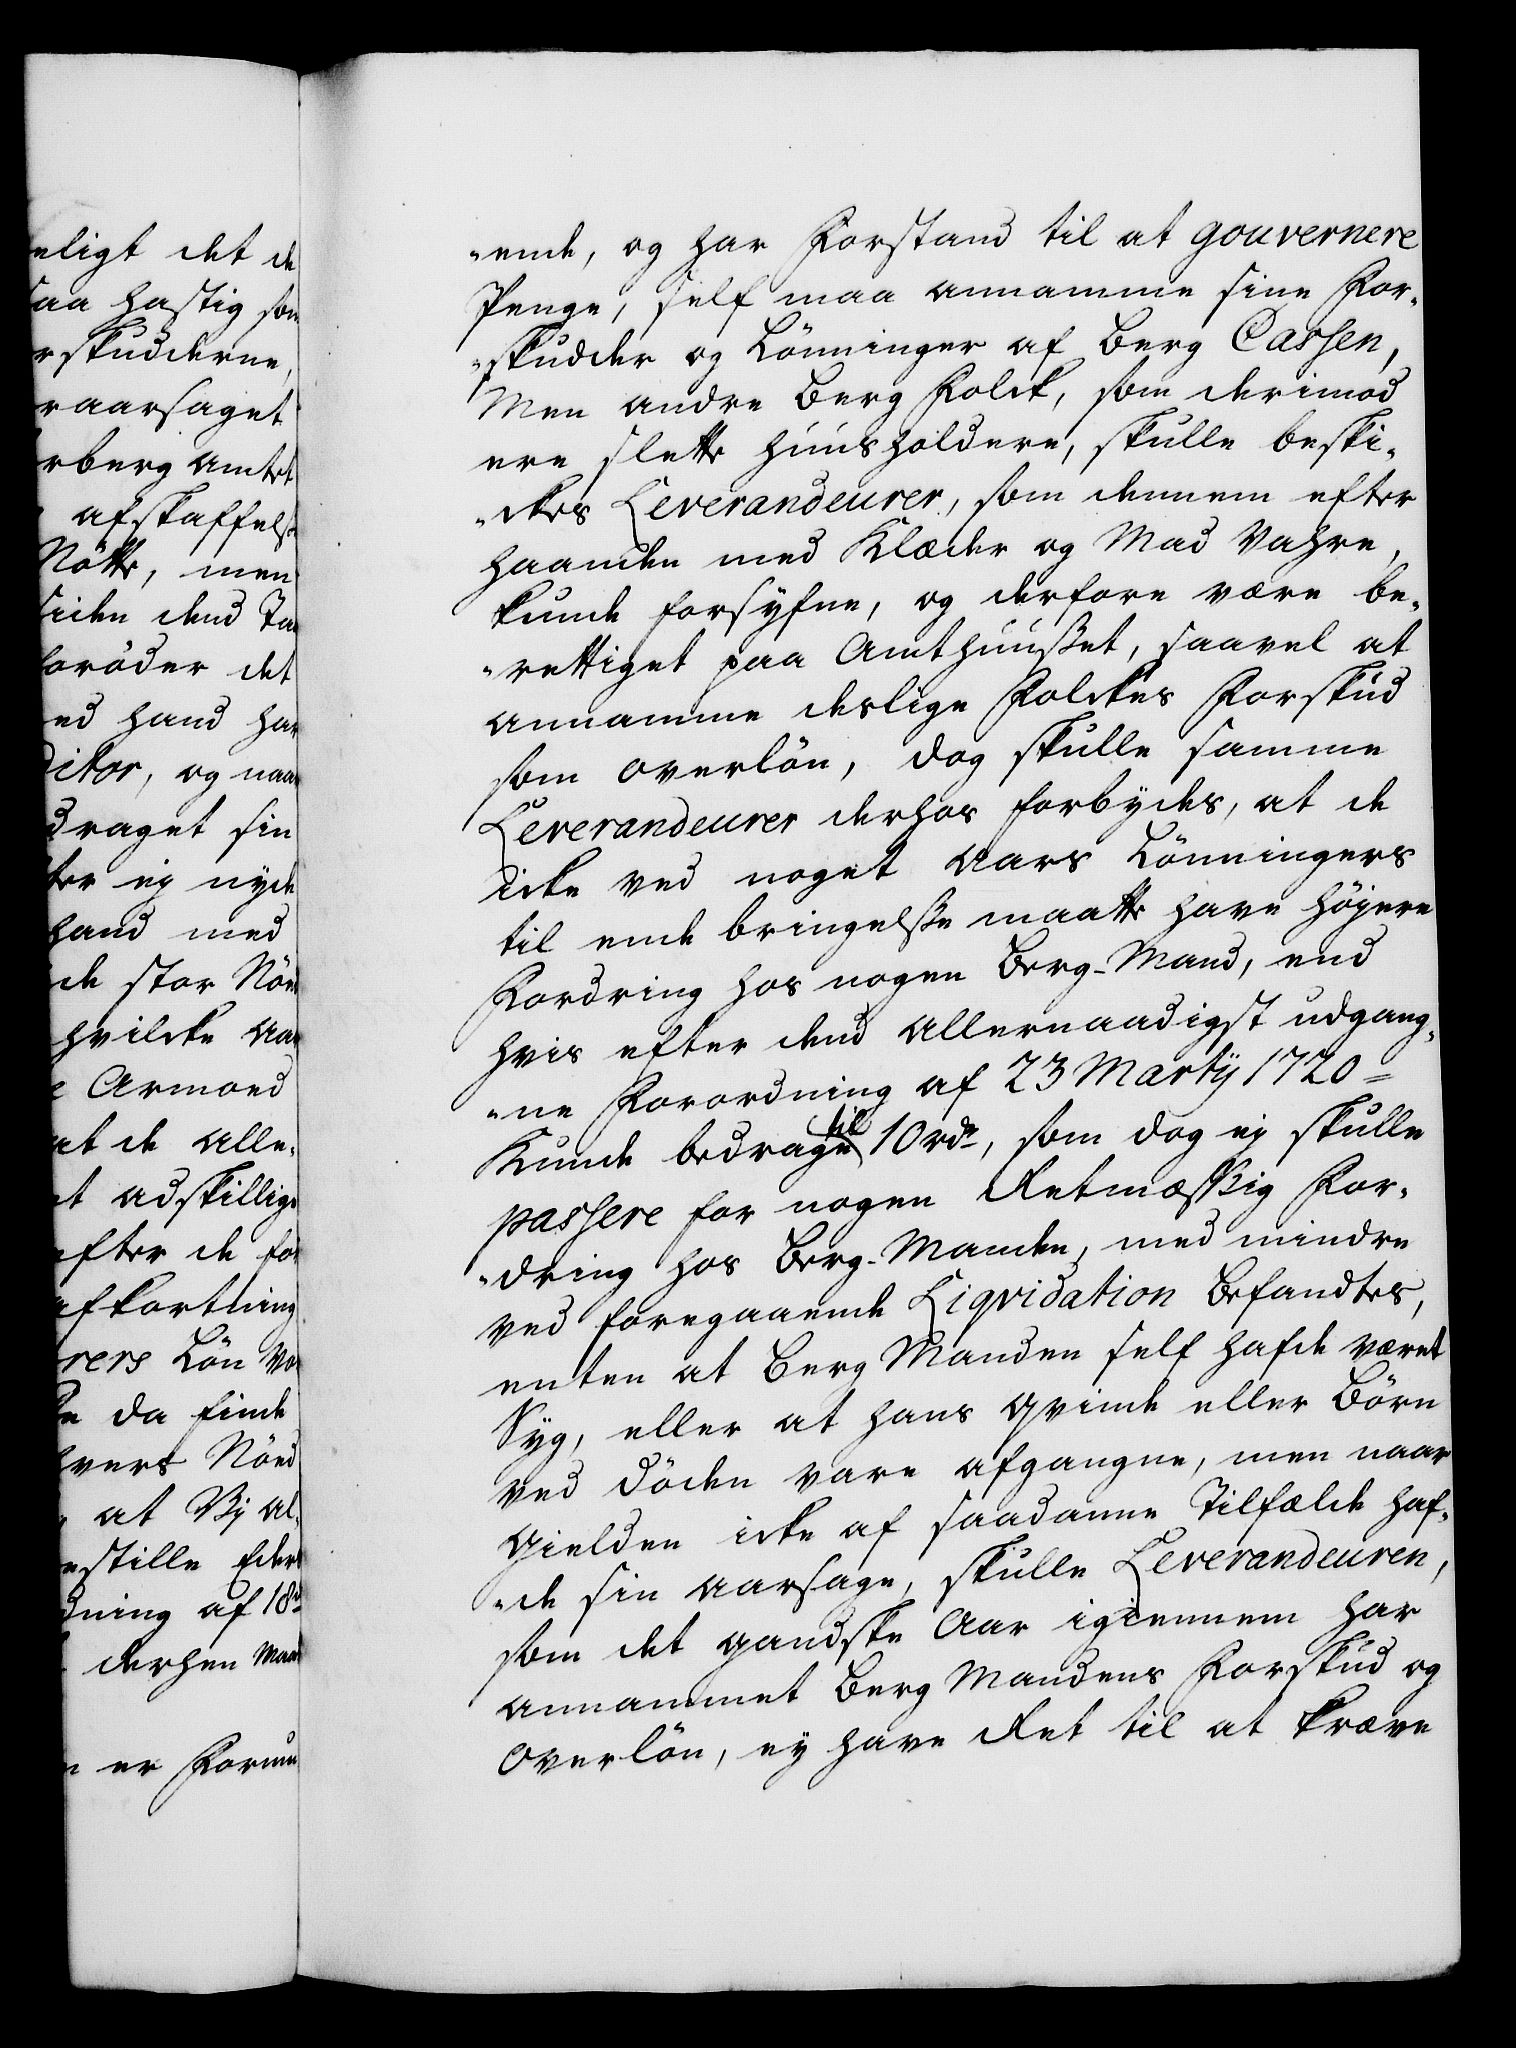 eligt det de
saa hastig som
rskudderne,
raarsaget
rberg Amtet
afskaffelse
Nötte, men
siden dend
foröder det
ed hand har
ditor, og naar
draget sin
ter ej nyde
hand med
de stor Nöed
hvilcke
Armoed
at de alle¬
t adskillige
efter de for
afkortning
rers Lön
da finde
hvers Nöed
at Vj al¬
estille Eder
dning af 18de
derhen
er Forun
¬ende, og har Forstand til at gouvernere
Penge, self maa annamme sine For¬
¬skudder og Lönninger af Berg Cassen,
Men andre Berg Folck, som derimod
ere slette huusholdere, skulle beski¬
¬ckes Leverandeurer, som dennem efter
haanden med Klæder og Mad Vahre,
kunde forsyfne, og derfore være be¬
¬rettiget paa Amthuusset, saavel at
annamme deslige Folckes Forskud
som overlön, dog skulle samme
Leverandeurer derhos forbydes, at de
icke ved noget Aars Lönningers
til ende bringelsse maatte have höjere
Fordring hos nogen Berg-Mand, end
hvis efter dend allernaadigst udgang¬
¬ne Forordning af 23 Martij 1720 =
Kunde bedrage til 10 rdr, som dog ej skulle
passere for nogen Retmæssig For¬
¬dring hos Berg-Manden, med mindre
ved foregaaende Liqvidation befandtes,
enten at Berg Manden self hafde været
Syg, eller at hans Qvinde eller Börn
ved Döden vare afgangne, men naar
Gielden icke af saadanne Tilfælde haf¬
¬de sin aarsage, skulle Leverandeuren,
som det gandske Aar igiennem har
annammet Berg Mandens Forskud og
Overlön, ey have Ret til at kræve